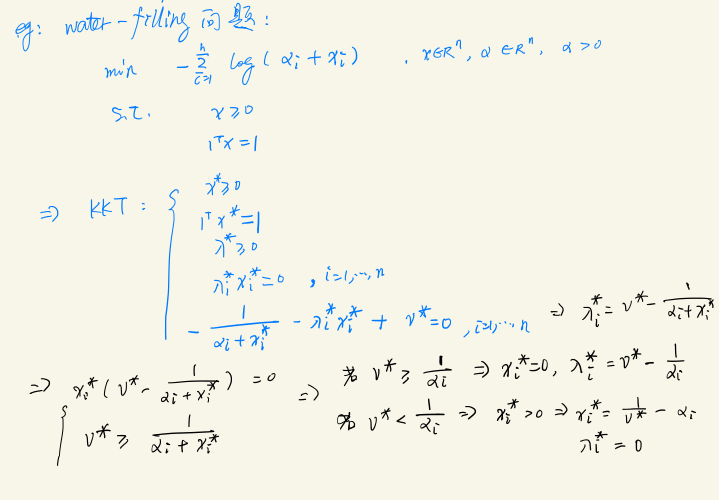 eg: water-filling 问题:
min -∑_{i=1}^{n} log(α_i + x_i) . x∈R^n, α∈R^n, α>0
s.t. x≥0
1^T x=1
⇒ KKT: { x*≥0
1^T x*=1
λ*≥0
λ_i* x_i*=0 , i=1,…,n
- 1/(α_i+x_i*) - λ_i* x_i* + ν*=0 , i=1,…,n ⇒ λ_i*= ν* - 1/(α_i+x_i*)
⇒ { x_i* (ν* - 1/(α_i+x_i*)) =0
ν* ≥ 1/(α_i+x_i*)
⇒ 当 ν* ≥ 1/α_i ⇒ x_i*=0, λ_i* = ν* - 1/α_i
当 ν* < 1/α_i ⇒ x_i*>0 ⇒ x_i* = 1/ν* - α_i
λ_i* = 0